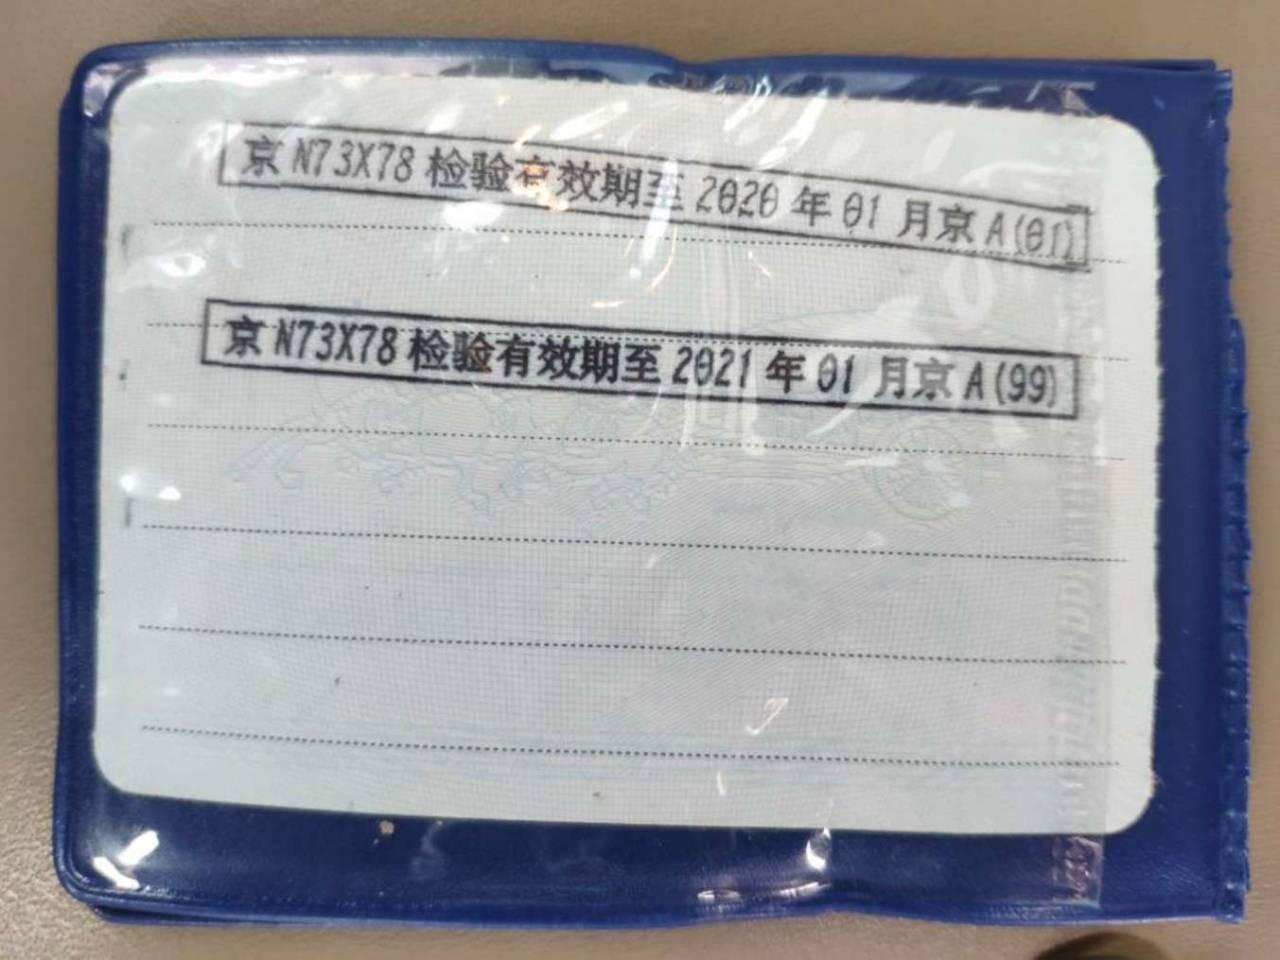 京N73X78检验有效期至2020年01月京A(01)
京N73X78检验有效期至2021年01月京A(99)